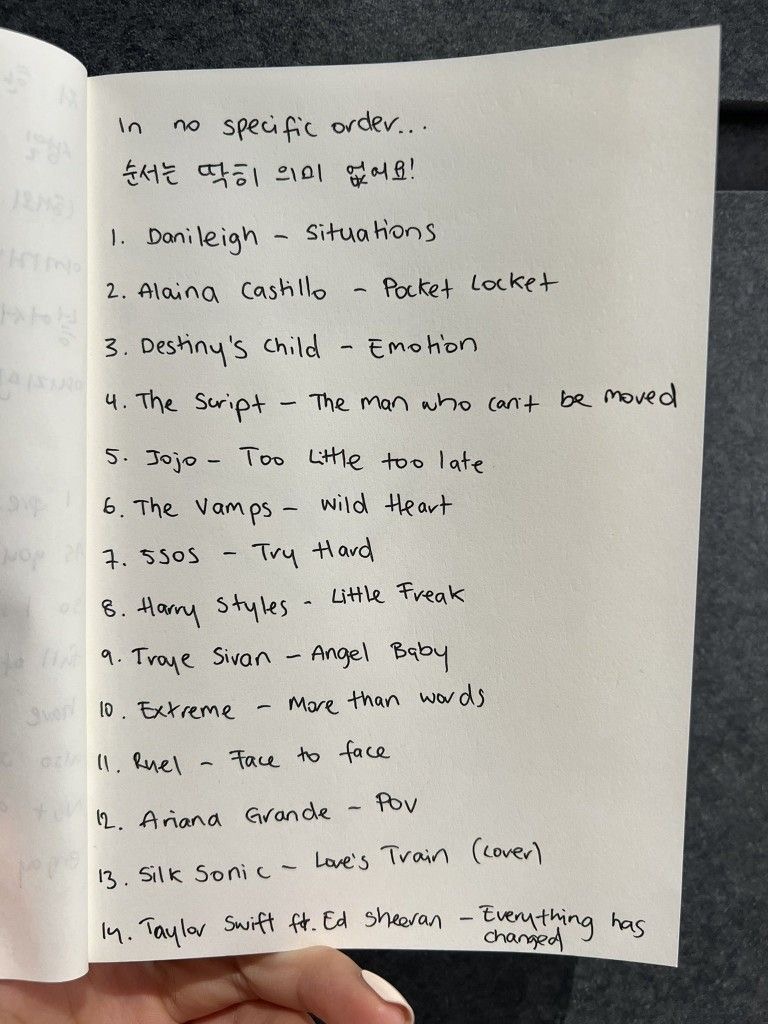 In no specific order...
순서는 딱히 의미 없어요!
1. Danileigh - Situations
2. Alaina Castillo - Pocket Locket
3. Destiny's Child - Emotion
4. The Script - The man who can't be moved
5. Jojo - Too Little too late
6. The Vamps - Wild Heart
7. 5SOS - Try Hard
8. Harry Styles - Little Freak
9. Troye Sivan - Angel Baby
10. Extreme - More than words
11. Ruel - Face to face
12. Ariana Grande - Pov
13. Silk Sonic - Love's Train (cover)
14. Taylor Swift ft. Ed sheeran - Everything has
changed